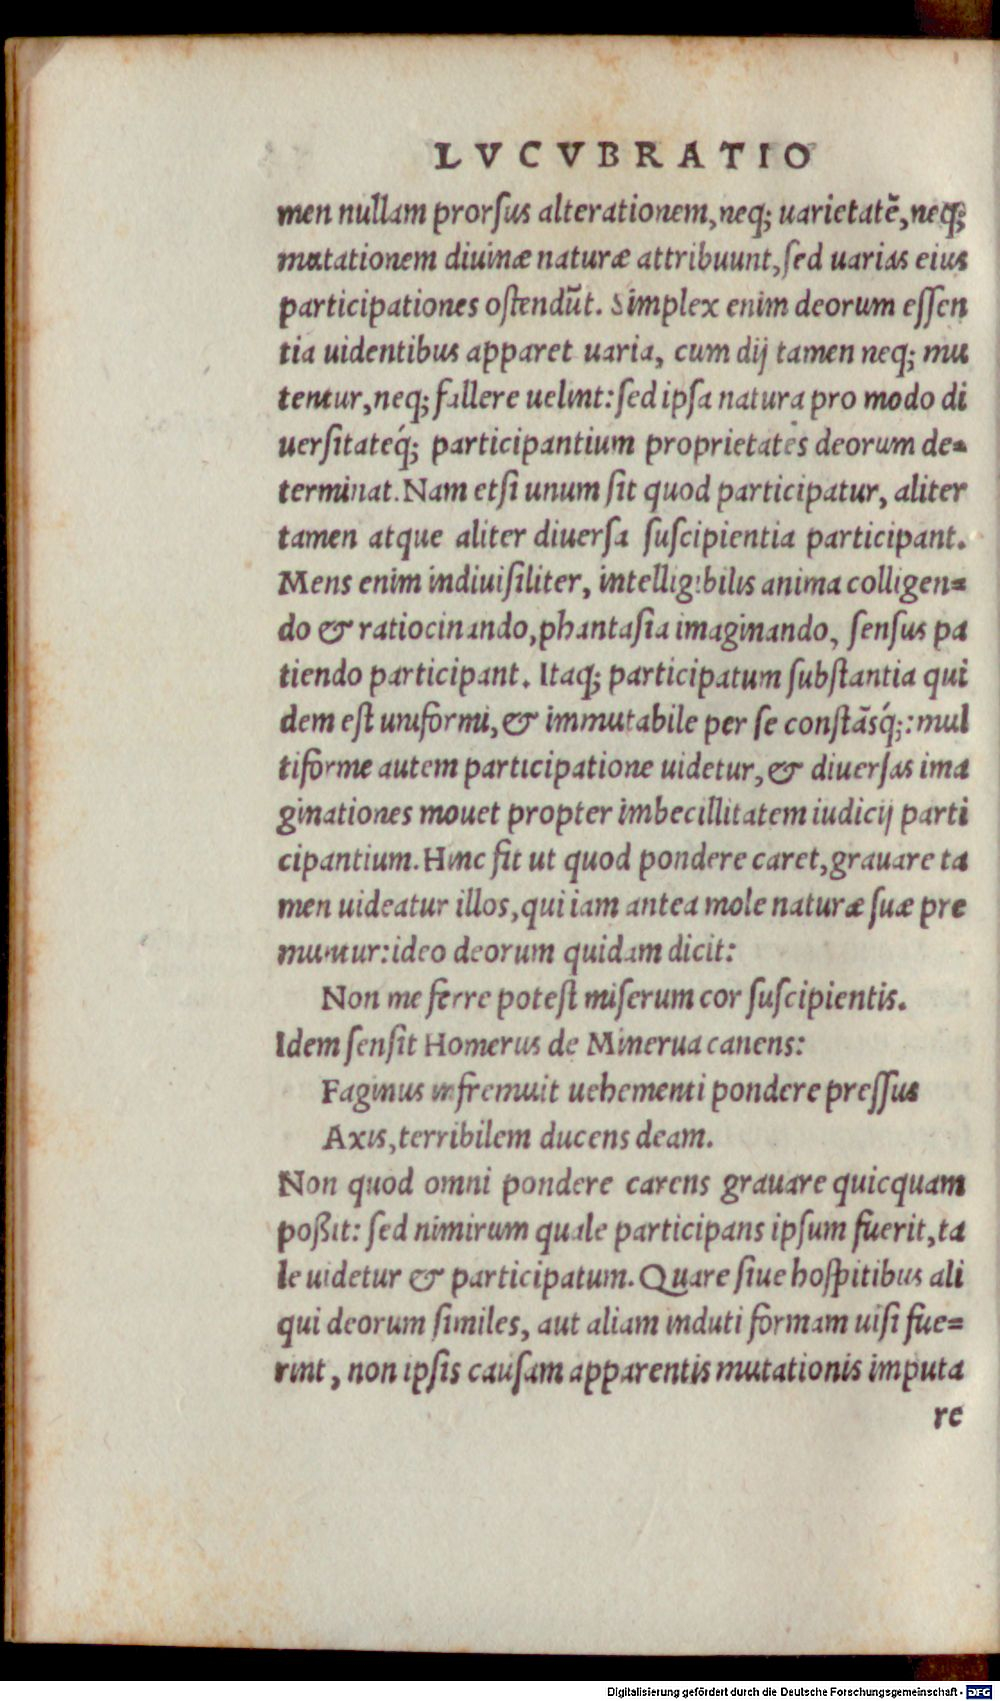 LVCVBRATIO
men nullam prorſus alterationem, neq; uarietatẽ, neq;
mutationem diuinæ naturæ attribuunt, ſed uarias eius
participationes oſtendũt. Simplex enim deorum eſſen
tia uidentibus apparet uaria, cum dij tamen neq; mu
tentur, neq; fallere uelint: ſed ipſa natura pro modo di
uerſitateq́; participantium proprietates deorum de=
terminat. Nam etſi unum ſit quod participatur, aliter
tamen atque aliter diuerſa ſuſcipientia participant.
Mens enim indiuiſiliter, intelligibilis anima colligen=
do & ratiocinando, phantaſia imaginando, ſenſus pa
tiendo participant. Itaq; participatum ſubſtantia qui
dem eſt uniformi, & immutabile per ſe conſtãsq́;: mul
tiforme autem participatione uidetur, & diuerſas ima
ginationes mouet propter imbecillitatem iudicij parti
cipantium. Hinc fit ut quod pondere caret, grauare ta
men uideatur illos, qui iam antea mole naturæ ſuæ pre
muntur: ideo deorum quidam dicit:
Non me ferre poteſt miſerum cor ſuſcipientis.
Idem ſenſit Homerus de Minerua canens:
Faginus infremuit uehementi pondere preſſus
Axis, terribilem ducens deam.
Non quod omni pondere carens grauare quicquam
poßit: ſed nimirum quale participans ipſum fuerit, ta
le uidetur & participatum. Quare ſiue hoſpitibus ali
qui deorum ſimiles, aut aliam induti formam uiſi fue=
rint, non ipſis cauſam apparentis mutationis imputa
re
Digitalisierung gefördert durch die Deutsche Forschungsgemeinschaft - DFG